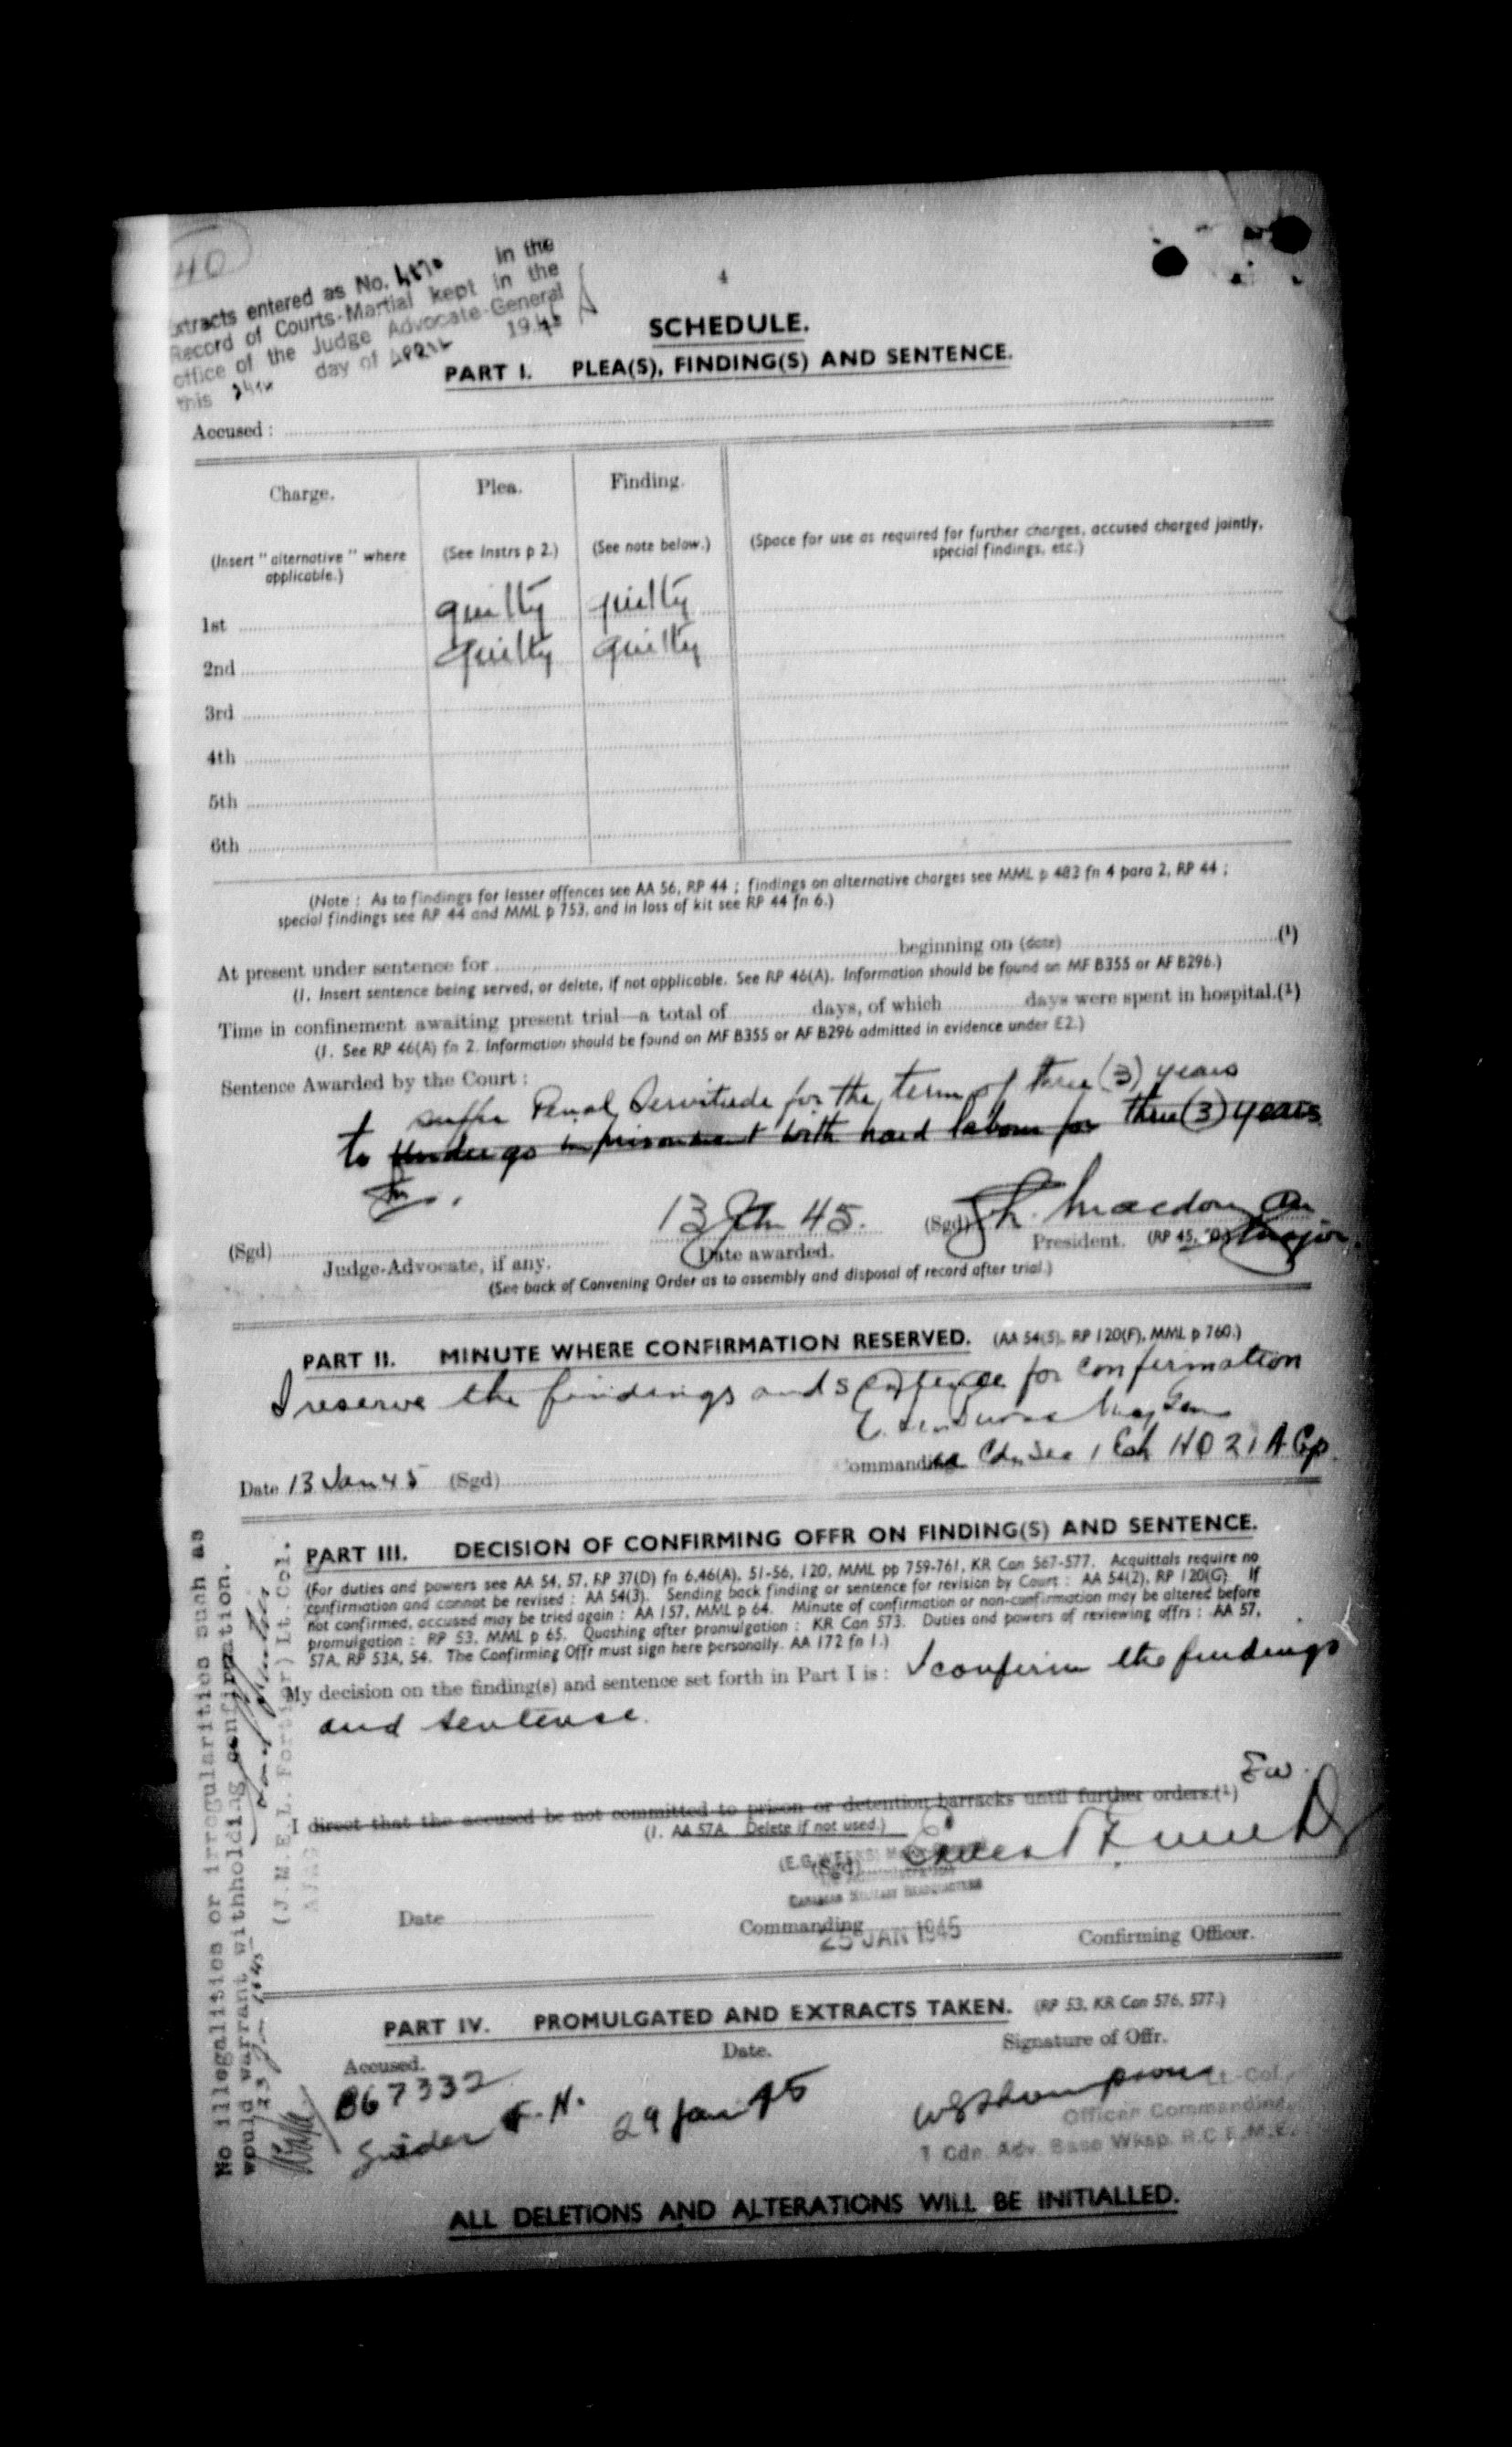 40
Extracts entered as No. in the
Record of Courts-Martial kept in the
office of the Judge Advocate-General
this 24th day of April 1945
4
SCHEDULE.
PART I. PLEA(S), FINDING(S) AND SENTENCE.
Accused :
Charge. Plea. Finding.
(Insert " alternative " where applicable.) (See Instrs p 2.) (See note below.) (Space for use as required for further charges, accused charged jointly, special findings, etc.)
1st guilty guilty
2nd guilty guilty
3rd
4th
5th
6th
(Note : As to findings for lesser offences see AA 56, RP 44 ; findings on alternative charges see MML p 483 fn 4 para 2, RP 44 ;
special findings see RP 44 and MML p 753, and in loss of kit see RP 44 fn 6.)
At present under sentence for beginning on (date) (1)
(1. Insert sentence being served, or delete, if not applicable. See RP 46(A). Information should be found on MF B355 or AF B296.)
Time in confinement awaiting present trial—a total of days, of which days were spent in hospital.(1)
(1. See RP 46(A) fn 2. Information should be found on MF B355 or AF B296 admitted in evidence under E2.)
Sentence Awarded by the Court :
suffer Penal Servitude for the term of three (3) years
to undergo imprisonment with hard labour for three (3) years
13 Jan 45. (Sgd) Macdon
(Sgd) Judge-Advocate, if any. Date awarded. President. (RP 45, Major
(See back of Convening Order as to assembly and disposal of record after trial.)
PART II. MINUTE WHERE CONFIRMATION RESERVED. (AA 54(5), RP 120(F), MML p 760.)
I reserve the findings and sentence for confirmation
Maj Gen
Date 13 Jan 45 (Sgd) Commanding Cdn Sec 1 Ech HQ 21 A Gp.
PART III. DECISION OF CONFIRMING OFFR ON FINDING(S) AND SENTENCE.
(For duties and powers see AA 54, 57, RP 37(D) fn 6,46(A), 51-56, 120, MML pp 759-761, KR Can 567-577. Acquittals require no
confirmation and cannot be revised : AA 54(3). Sending back finding or sentence for revision by Court : AA 54(2), RP 120(G) If
not confirmed, accused may be tried again : AA 157, MML p 64. Minute of confirmation or non-confirmation may be altered before
promulgation : RP 53, MML p 65. Quashing after promulgation : KR Can 573. Duties and powers of reviewing offrs : AA 57,
57A, RP 53A, 54. The Confirming Offr must sign here personally. AA 172 fn 1.)
My decision on the finding(s) and sentence set forth in Part I is : I confirm the findings
and sentence.
EW.
I direct that the accused be not committed to prison or detention barracks until further orders.(1)
(1. AA 57A. Delete if not used.)
(E.G. WEEKS)
(Sgd)
CANADIAN MILITARY HEADQUARTERS
Date Commanding Confirming Officer.
25 JAN 1945
PART IV. PROMULGATED AND EXTRACTS TAKEN. (RP 53, KR Can 576, 577.)
Accused. Date. Signature of Offr.
B67332
F.H. 29 Jan 45 Lt-Col,
Officer Commanding,
1 Cdn. Adv. Base Wksp. R.C.E.M.E.
ALL DELETIONS AND ALTERATIONS WILL BE INITIALLED.
No illegalities or irregularities such as
would warrant withholding confirmation.
(J.M.E.L. Fortier) Lt.Col.
AJAG